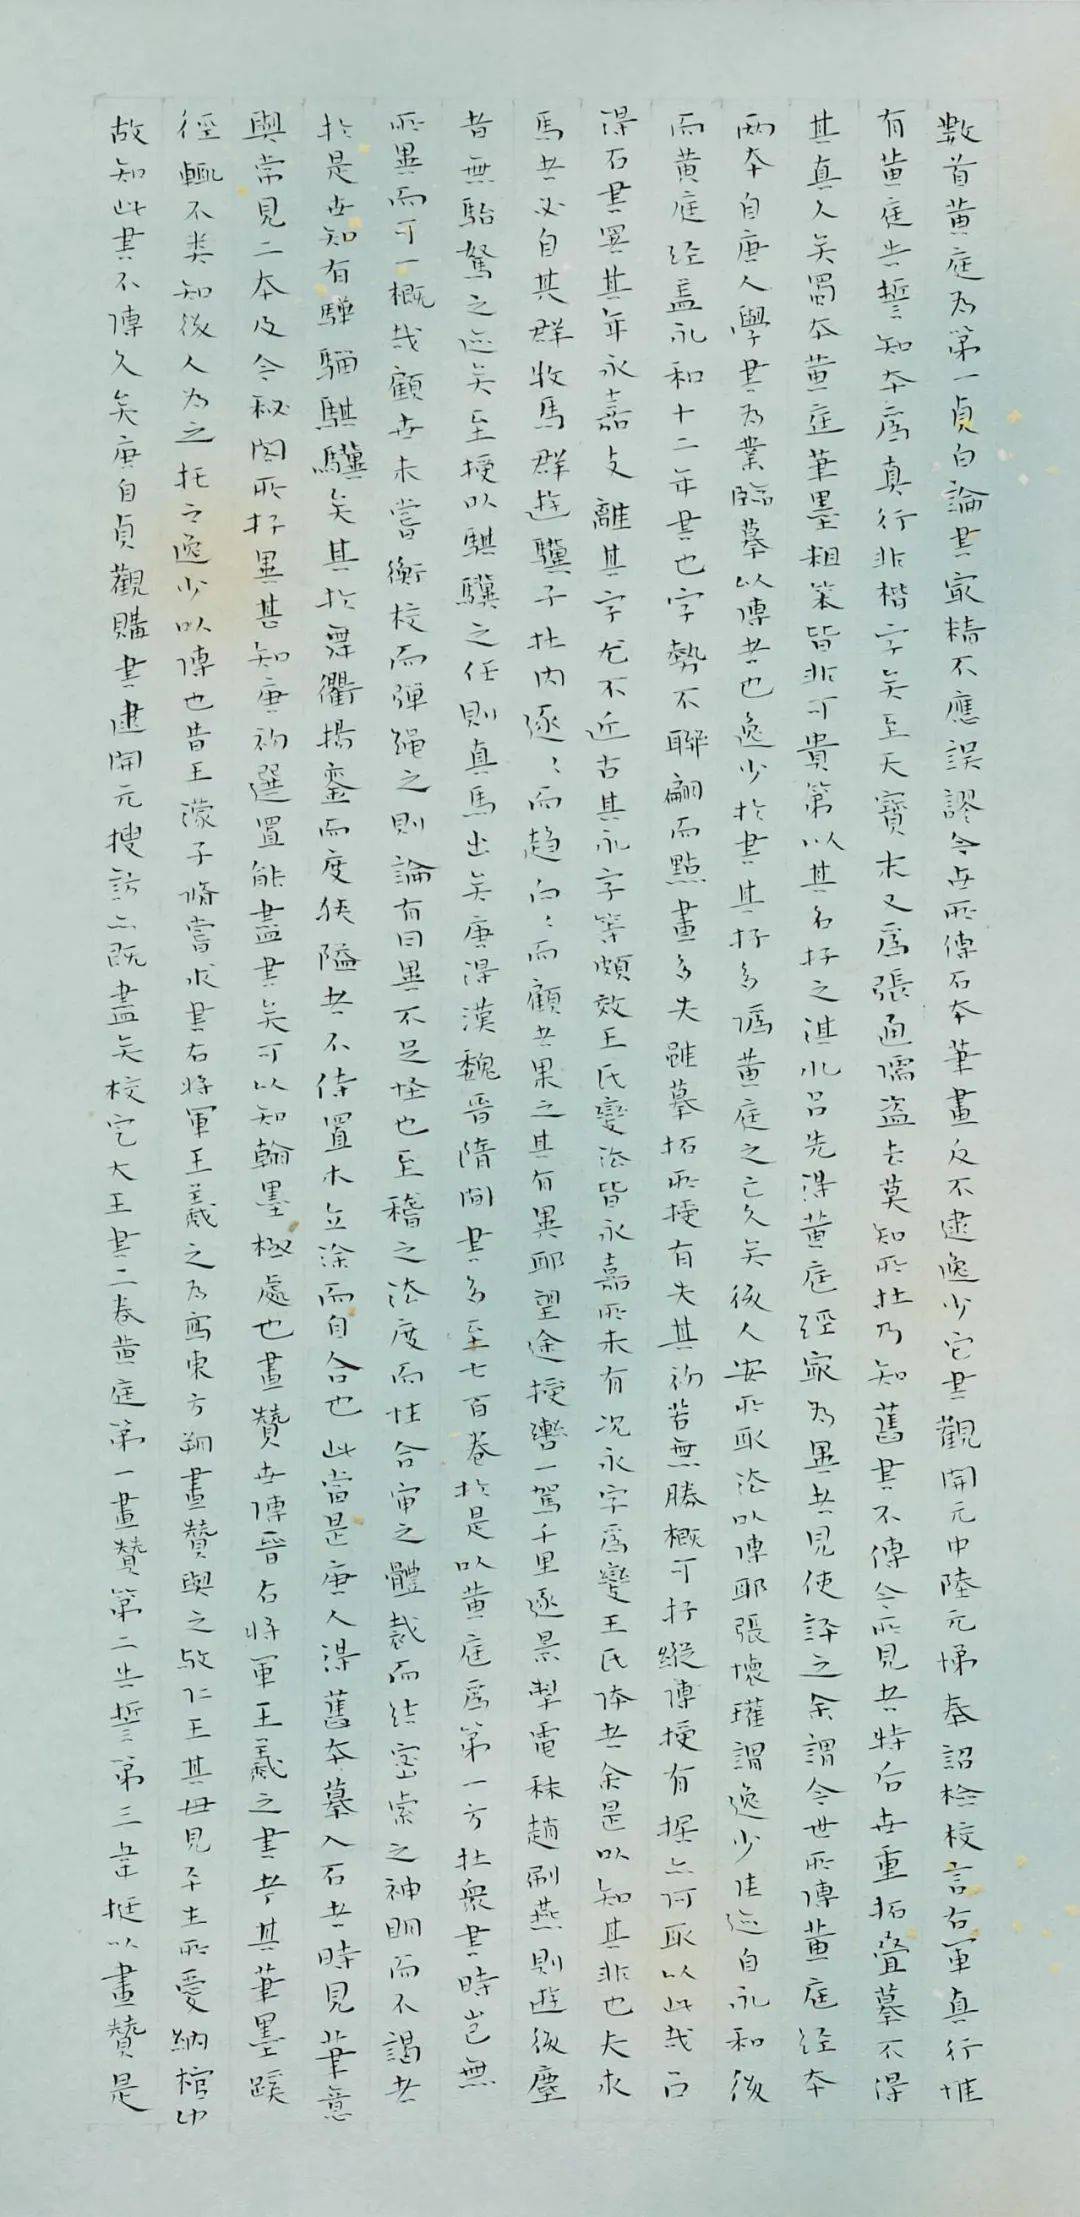 數首黃庭為第一貞白論書最精不應誤謬今世所傳石本筆畫反不逮逸少它書觀開元中陸元悌奉詔檢校言右軍真行惟
有黃庭告誓知本為真行非楷字矣至天寶末又為張通儒盜去莫知所在乃知舊書不傳今所見者特后世重拓疊摹不得
其真人矣蜀本黃庭筆墨粗笨皆非可貴第以其名存之淇水吕先得黃庭經最為異者見使評之余謂今世所傳黃庭經本
兩本自唐人學書為業臨摹以傳者也逸少於書其存多偽黃庭之亡久矣後人安所取法以傳耶張懷瓘謂逸少佳迹自永和後
而黃庭經蓋永和十二年書也字勢不聯翩而點畫多失雖摹拓所授有失其初若無勝概可存縱傳授有據亦何取以此哉石
得石書異其年永嘉支離其字尤不近古其永字等頗效王氏變法皆永嘉所未有况永字為變王氏体者余是以知其非也夫求
馬者必自其群收馬群逰驥子在内逐〻而趋向〻而顧者果之其有異耶望途授轡一駕千里逐景掣電秣趙刷燕則逰後塵
者無駘駑之迹矣至授以騏驥之任則真馬出矣唐得漢魏晋隋間書多至七百卷於是以黃庭為第一方在衆書時岂無
所異而可一概哉顧世未嘗衡校而彈繩之則論有曰異不足怪也至稽之法度而性合审之體裁而结密索之神明而不謁者
於是世知有驊騮騏驥矣其於舞衢揚鑾而度狭隘者不待置木立涂而自合也此當是唐人得舊本摹入石者時見筆意
與常見二本及今秘閣所存異甚知唐初選置能盡書矣可以知翰墨極處也畫贊世傳晋右將軍王羲之書考其筆墨蹊
徑輒不类知後人為之托之逸少以傳也昔王濛子脩嘗求書右將軍王羲之為寫東方朔畫贊與之敬仁亡其母見平生所愛納棺中
故知此書不傳久矣唐自貞觀購書逮開元搜訪亦既盡矣校定大王書二卷黃庭第一畫贊第二告誓第三韋挺以畫贊是